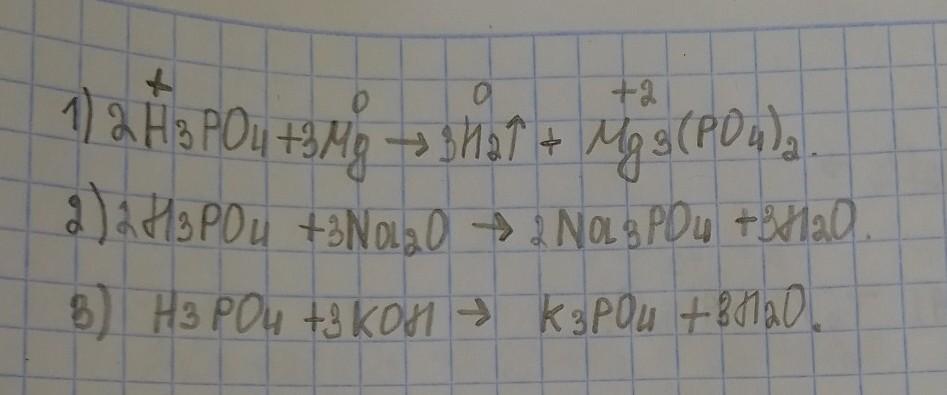 + 0 0 +2
1) 2H3PO4 + 3Mg → 3H2↑ + Mg3(PO4)2.
2) 2H3PO4 + 3Na2O → 2Na3PO4 + 3H2O.
3) H3PO4 + 3KOH → K3PO4 + 3H2O.